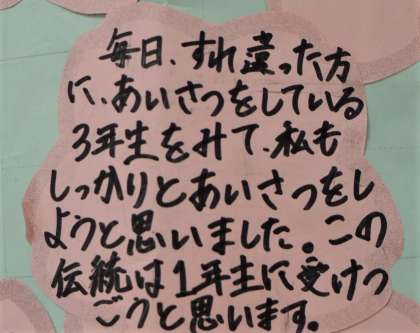 毎日、すれ違った方
に、あいさつをしている
3年生をみて、私も
しっかりとあいさつをし
ようと思いました。この
伝統は1年生に受けつ
ごうと思います。